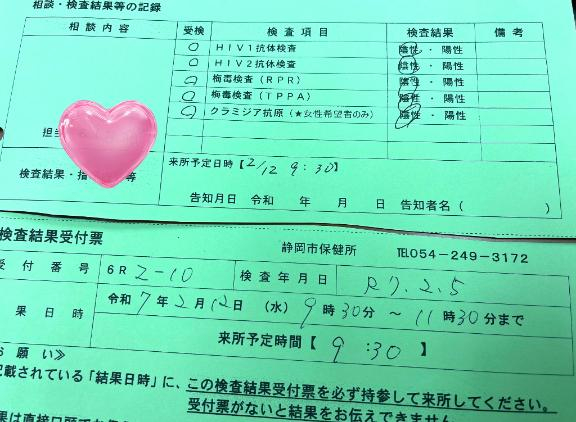 相談・検査結果等の記録
相談内容 受検 検査項目 検査結果 備考
○ HIV1抗体検査 陰性・陽性
○ HIV2抗体検査 陰性・陽性
○ 梅毒検査(RPR) 陰性・陽性
○ 梅毒検査(TPPA) 陰性・陽性
○ クラミジア抗原(★女性希望者のみ) 陰性・陽性
担当
来所予定日時【2/12 9:30】
検査結果・指 等
告知月日 令和 年 月 日 告知者名( )
検査結果受付票 静岡市保健所 TEL054-249-3172
受付番号 6R Z-10 検査年月日 R7.2.5
果日時 令和7年2月12日(水)9時30分~11時30分まで
来所予定時間【9:30】
お願い≫
記載されている「結果日時」に、この検査結果受付票を必ず持参して来所してください。
受付票がないと結果をお伝えできません